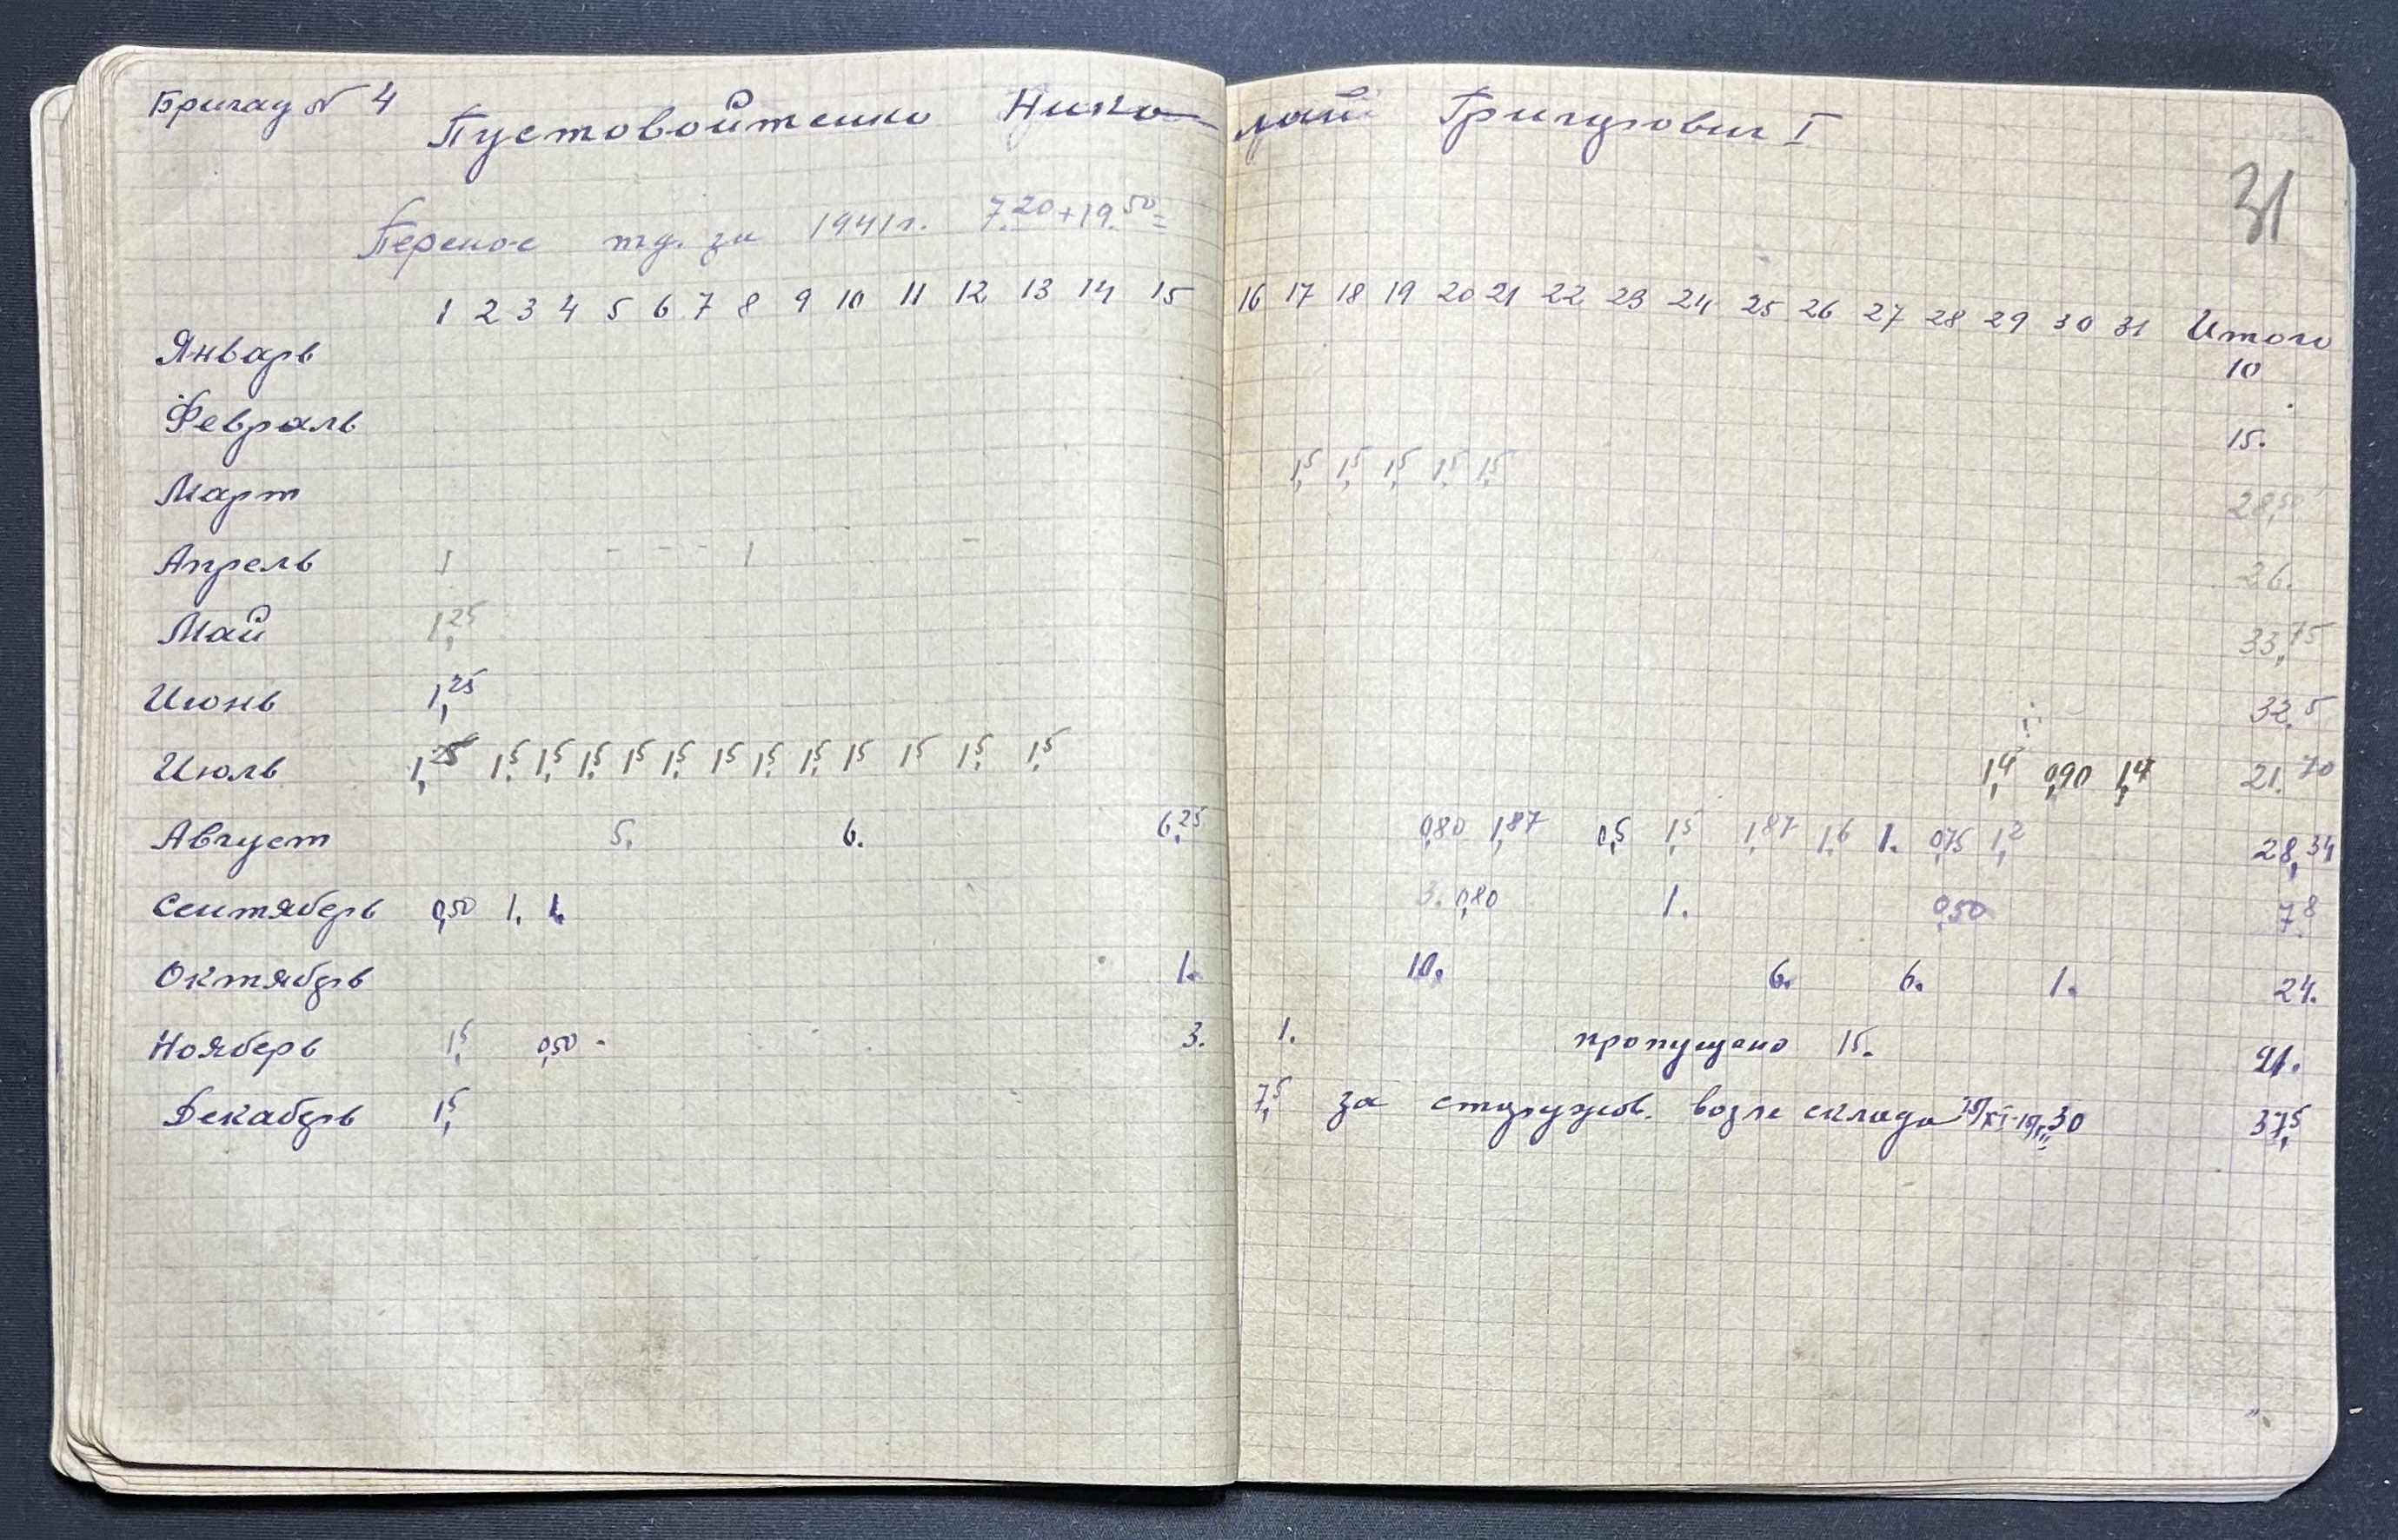 Бригад № 4
Пустовойтенко Николай Григорович I
31
Перенос тд. за 1941 г. 7.20+19.50=
1 2 3 4 5 6 7 8 9 10 11 12 13 14 15 16 17 18 19 20 21 22 23 24 25 26 27 28 29 30 31 Итого
Январь 10
Февраль 15.
Март 1,5 1,5 1,5 1,5 1,5 28,50
Апрель 1 - - - 1 - 26.
Май 1,25 33,75
Июнь 1,25 32.5
Июль 1,25 1,5 1,5 1,5 1,5 1,5 1,5 1,5 1,5 1,5 1,5 1,5 1,5 1,4 0,90 1,4 21.70
Август 5. 6. 6,25 0,80 1,87 0,5 1,5 1,87 1,6 1. 0,75 1,2 28,34
Сентяберь 0,50 1. 1. 3. 0,80 1. 0,50 7.8
Октябрь 1. 10. 6. 6. 1. 24.
Нояберь 1,5 0,50 - 3. 1. пропущено 15. 21.
Декабрь 1,5 7,5 за сторужов. возле склада 30 37,5